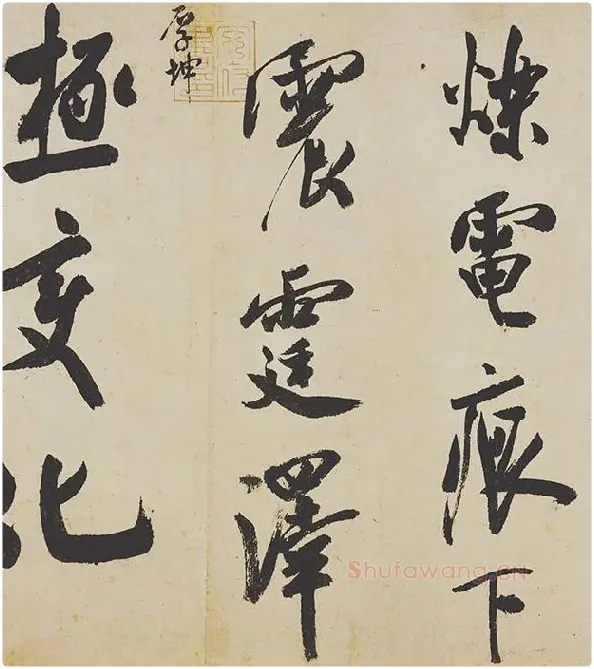 爍電痕下
震霆澤
厚坤
極變化
Shufawang.CN